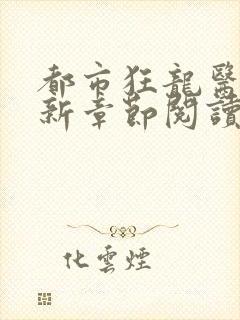 都市狂龍醫
新章節閱讀
化雲煙